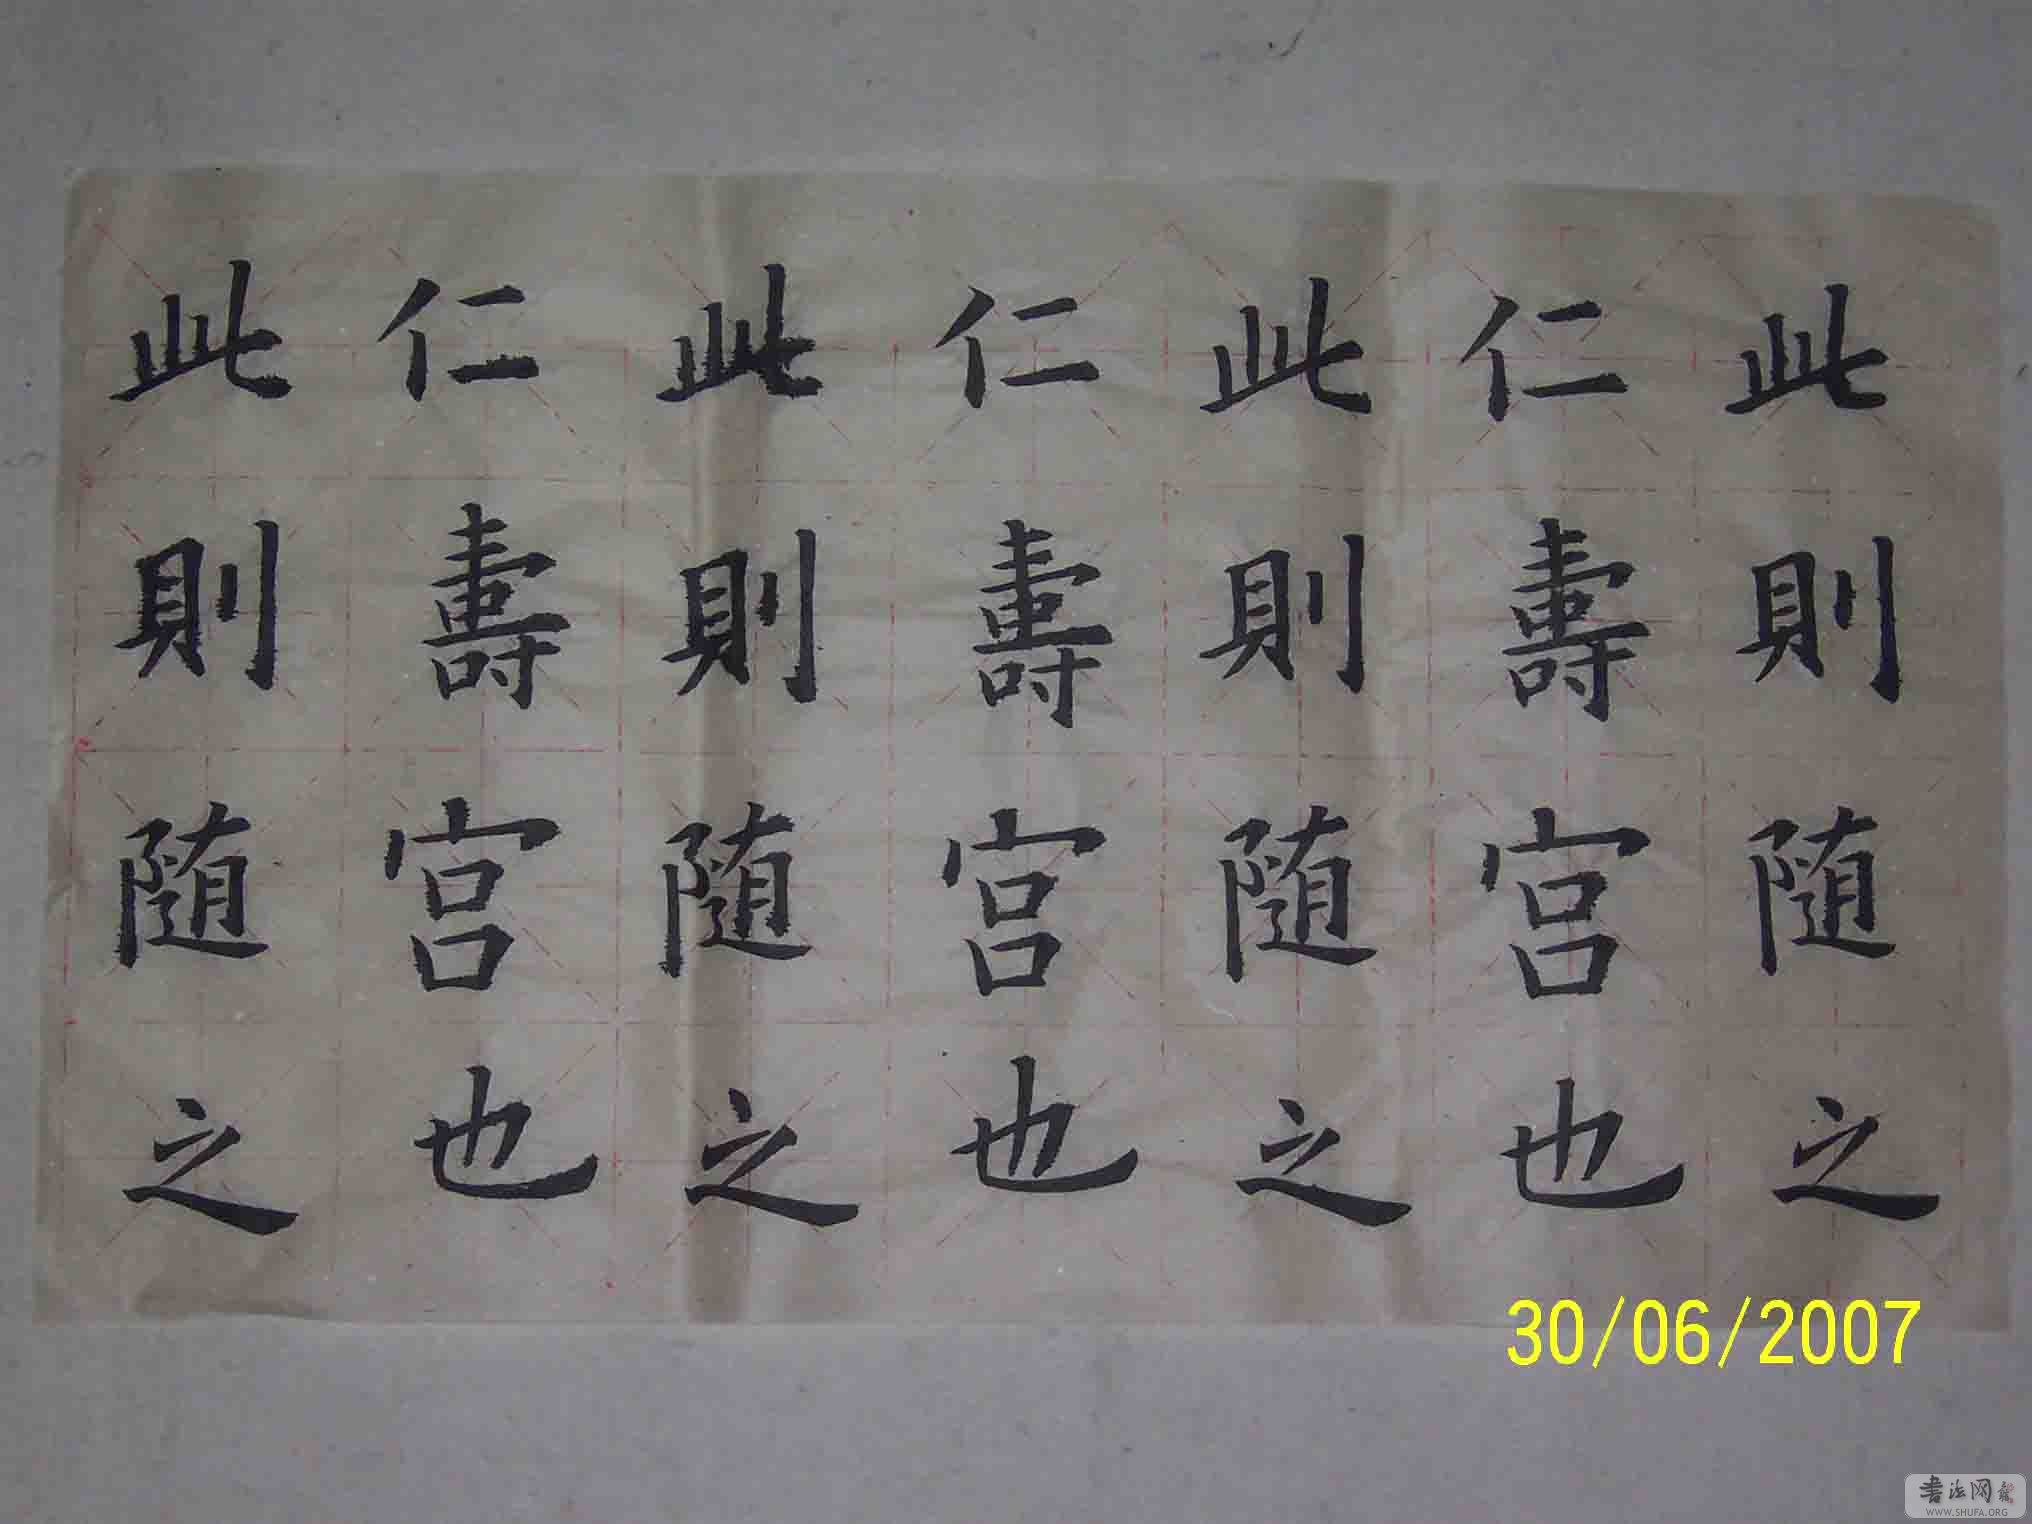 此則随之
仁壽宮也
此則随之
仁壽宮也
此則随之
仁壽宮也
此則随之
30/06/2007
书法网
WWW.SHUFA.ORG